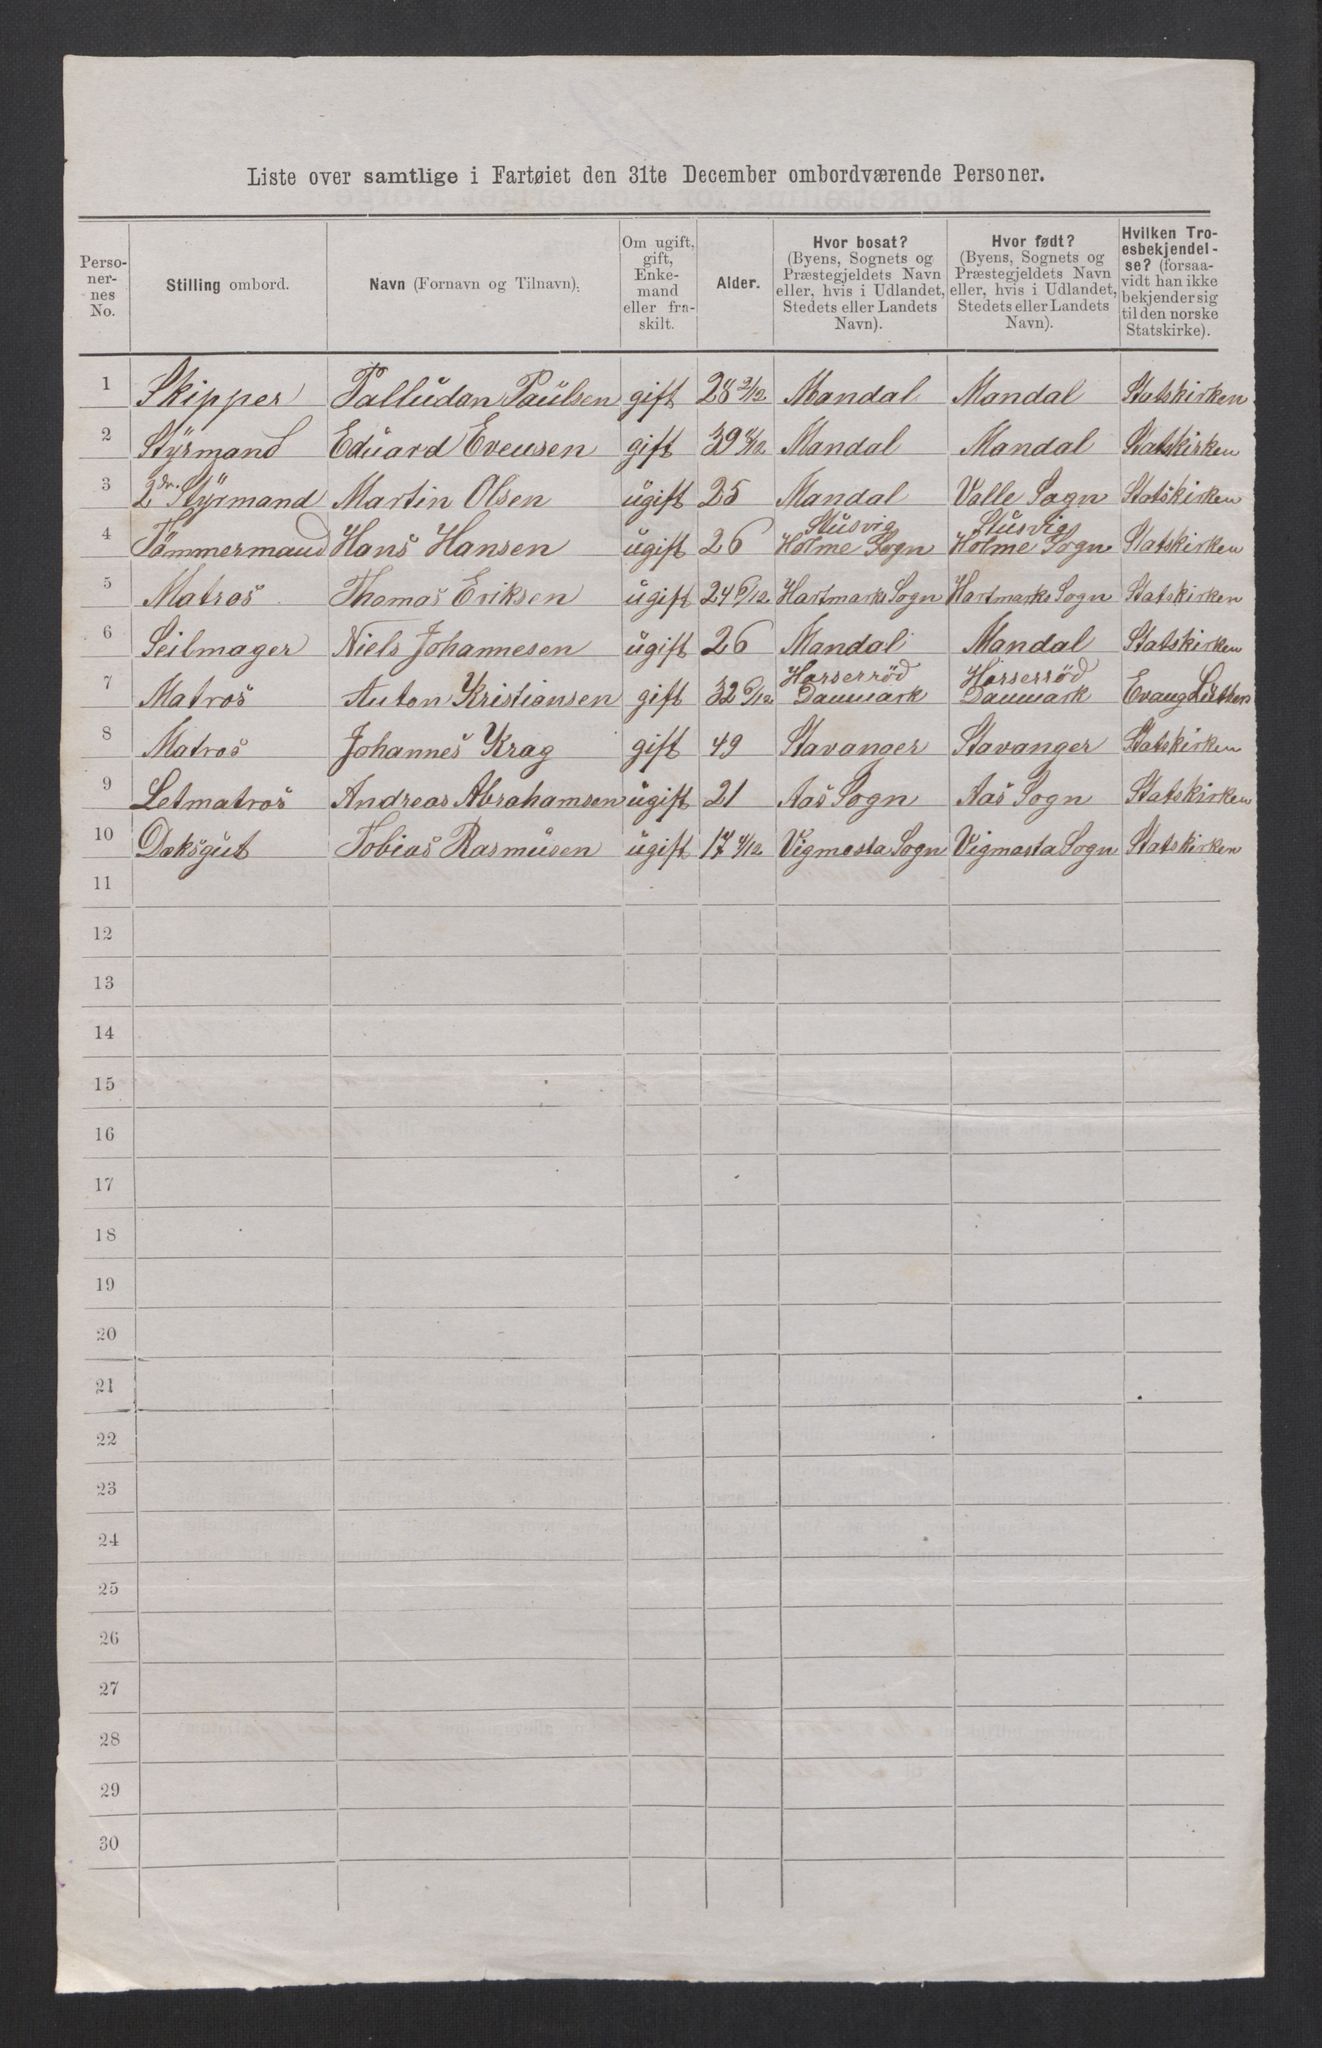 Liste over samtlige i Fartøiet den 31te December ombordværende Personer.
Perso-
ner-
nes
No.
Stilling ombord.
Navn (Fornavn og Tilnavn).
Om ugift,
gift,
Enke-
mand
eller fra-
skilt.
Alder.
Hvor bosat?
(Byens, Sognets og
Præstegjeldets Navn
eller, hvis i Udlandet,
Stedets eller Landets
Navn).
Hvor født?
(Byens, Sognets og
Præstegjeldets Navn
eller, hvis i Udlandet,
Stedets eller Landets
Navn).
Hvilken Tro-
esbekjendel-
se? (forsaa-
vidt han ikke
bekjender sig
til den norske
Statskirke).
1 Skipper Palludan Paulsen gift 28 2/12 Mandal Mandal Statskirken
2 Styrmand Eduard Evensen gift 39 Mandal Mandal Statskirken
3 2den Styrmand Martin Olsen ugift 25 Mandal Valle Sogn Statskirken
4 Tømmermand Hans Hansen ugift 26 Stusvig Holme Sogn Stusvig Holme Sogn Statskirken
5 Matros Thomas Eriksen ugift 24 6/12 Hartmarks Sogn Hartmarks Sogn Statskirken
6 Seilmager Niels Johannesen ugift 26 Mandal Mandal Statskirken
7 Matros Anton Kristiansen gift 32 6/12 Horserröd Danmark Horserröd Danmark Evang Luthers
8 Matros Johannes Krag gift 49 Stavanger Stavanger Statskirken
9 Letmatros Andreas Abrahamsen ugift 21 Aas Sogn Aas Sogn Statskirken
10 Dæksgut Tobias Rasmusen ugift 17 Vigmosta Sogn Vigmosta Sogn Statskirken
11
12
13
14
15
16
17
18
19
20
21
22
23
24
25
26
27
28
29
30